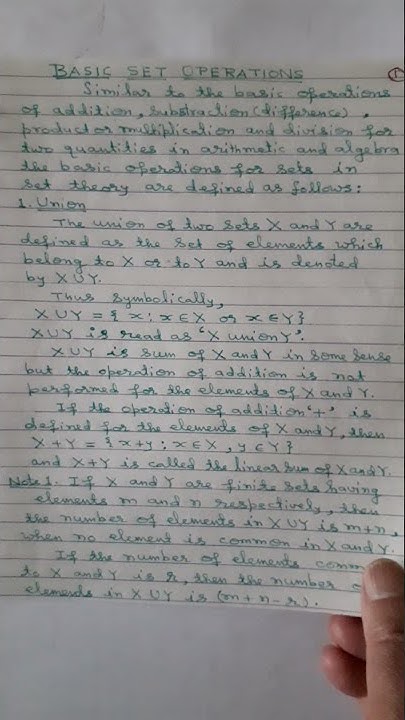 BASIC SET OPERATIONS
1
Similar to the basic operations
of addition, substraction (difference),
product or multiplication and division for
two quantities in arithmetic and algebra
the basic operations for sets in
set theory are defined as follows:
1. Union
The union of two sets X and Y are
defined as the set of elements which
belong to X or to Y and is denoted
by X∪Y.
Thus symbolically,
X∪Y = {x : x∈X or x∈Y}
X∪Y is read as 'X union Y'.
X∪Y is sum of X and Y in some sense
but the operation of addition is not
performed for the elements of X and Y.
If the operation of addition '+' is
defined for the elements of X and Y, then
X+Y = {x+y : x∈X, y∈Y}
and X+Y is called the linear sum of X and Y.
Note 1. If X and Y are finite sets having
elements m and n respectively, then
the number of elements in X∪Y is m+n,
when no element is common in X and Y.
If the number of elements comm
to X and Y is r, then the number o
elements in X∪Y is (m+n-r).